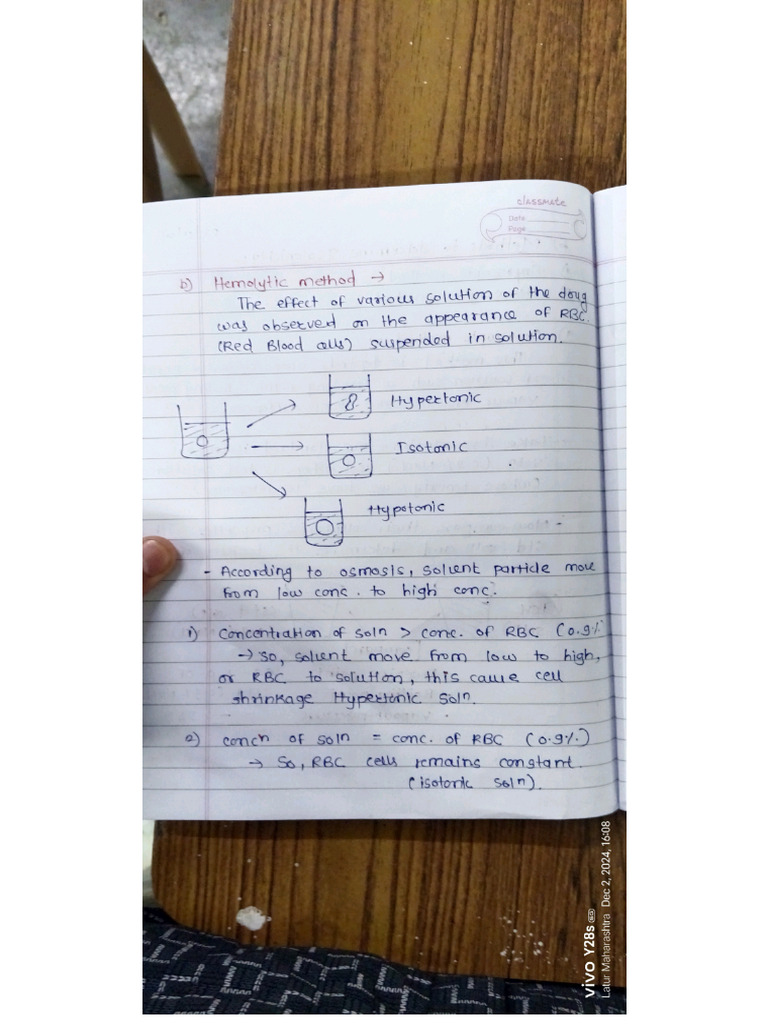 classmate
Date
Page
b) Hemolytic method →
The effect of various solution of the doug
was observed on the appearance of RBC.
(Red Blood cells) suspended in solution.
Hypertonic
Isotonic
Hypotonic
- According to osmosis, solvent particle move
from low conc. to high conc.
1) Concentration of soln > conc. of RBC (0.9%
→ so, solvent move from low to high,
or RBC to solution, this cause cell
shrinkage Hypertonic soln.
2) concn of soln = conc. of RBC (0.9%)
→ So, RBC cells remains constant.
(isotonic soln).
vivo Y28s 5G
Latur Maharashtra Dec 2, 2024, 16:08